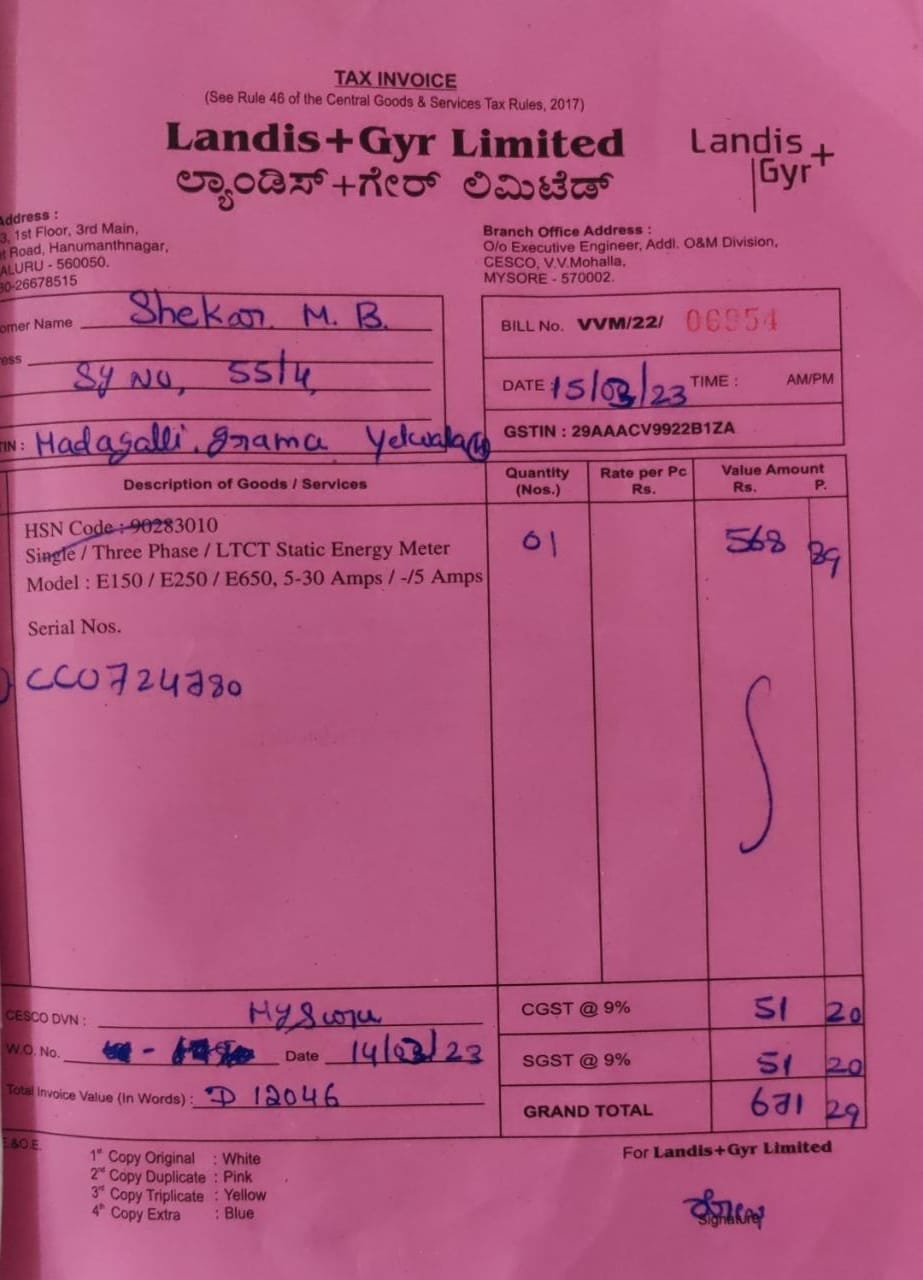 TAX INVOICE
(See Rule 46 of the Central Goods & Services Tax Rules, 2017)
Landis+Gyr Limited
ಲ್ಯಾಂಡಿಸ್+ಗೇರ್ ಲಿಮಿಟೆಡ್
Landis+
Gyr
Address :
3, 1st Floor, 3rd Main,
t Road, Hanumanthnagar,
ALURU - 560050.
80-26678515
Branch Office Address :
O/o Executive Engineer, Addl. O&M Division,
CESCO, V.V.Mohalla,
MYSORE - 570002.
omer Name Shekar M. B.
ess
Sy No, 55/4,
TIN : Madagalli. Grama Yelwala(H)
BILL No. VVM/22/ 06954
DATE : 15/03/23 TIME : AM/PM
GSTIN : 29AAACV9922B1ZA
Description of Goods / Services Quantity (Nos.) Rate per Pc Rs. Value Amount Rs. P.
HSN Code : 90283010
Single / Three Phase / LTCT Static Energy Meter 01 568 89
Model : E150 / E250 / E650, 5-30 Amps / -/5 Amps
Serial Nos.
CC0724780
CESCO DVN : Mysore
CGST @ 9% 51 20
W.O. No. Date 14/03/23
SGST @ 9% 51 20
Total Invoice Value (In Words) : D 12046
GRAND TOTAL 671 29
E.&O.E.
1st Copy Original : White
2nd Copy Duplicate : Pink
3rd Copy Triplicate : Yellow
4th Copy Extra : Blue
For Landis+Gyr Limited
Signature